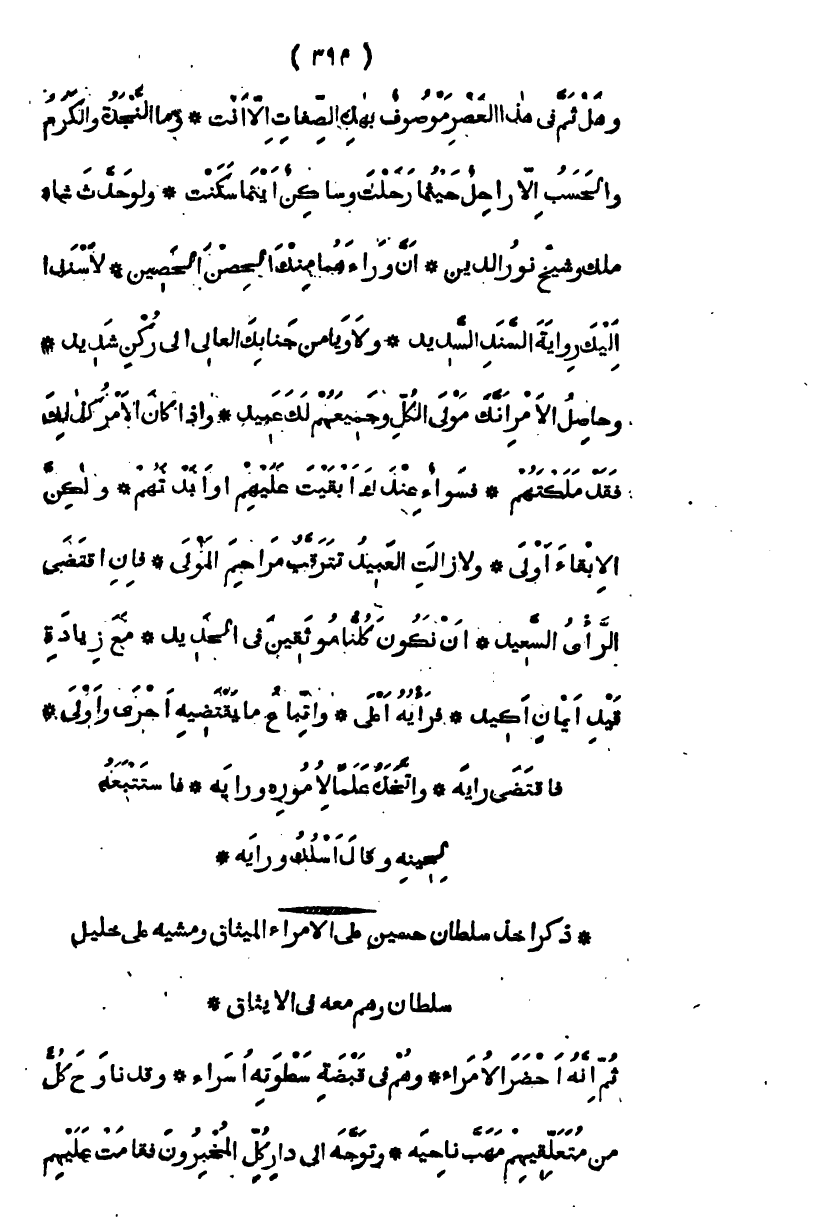 ( ٣٩٥ )
وهَلْ ثَمَّ فى هذا العَصْرِ مَوْصوفٌ بهٰذِه الصِّفاتِ اِلّا اَنْت * وَما النَّجْدَةُ والكَرَمُ
والحَسَبُ اِلّا راحِلٌ حَيْثُما رَحَلْتَ وساكِنٌ اَيْنَما سَكَنْت * ولو حَدَّثَ شاه
ملك وشيْخ نورُ الدين * اَنَّ وَراءَهُما مِنْكَ الحِصْنَ الحَصِين * لَاَسْنَدا
اِلَيْكَ رِوايَةَ السَّنَدِ السَّدِيد * ولَاَوَيا من جَنابِكَ العالى الى رُكْنٍ شَدِيد *
وحاصِلُ الاَمْرِ اَنَّكَ مَوْلَى الكُلِّ وجَمِيعُهُمْ لَكَ عَبِيد * واِذا كانَ الاَمْرُ كَذٰلِكَ
فقَدْ مَلَكْتَهُمْ * فسَواءٌ عِنْدَكَ اَبْقَيْتَ عَلَيْهِمْ اواَبَدْتَهُمْ * ولٰكِنَّ
الاِبْقاءَ اَوْلَى * ولازالَتِ العَبِيدُ تتَرقَّبُ مَراحِمَ المَوْلَى * فاِنِ اقتَضَى
الرَّأْىُ السَّعِيد * اَنْ نَكُونَ كُلُّنا مُوثَقِينَ فى الحَدِيد * مَعَ زِيادَةِ
قَيْدِ اَيْمانٍ اَكِيد * فرَأْيُهُ اَعْلَى * واتِّباعُ ما يَقْتَضِيهِ اَحْرَى واَوْلَى *
فاقتَضَى رايَه * واتَّخَذَ عَلَمًا لِاُمُورِه ورايَه * فاستَتْبَعَهُ
لِحِينِه وقالَ اسْلُكْ ورايَه *
* ذكر اخذ سلطان حسين على الامراء الميثاق ومشيه على خليل
سلطان وهم معه فى الايثاق *
ثُمَّ اِنَّهُ اَحْضَرَ الاُمَراء * وهُمْ فى قَبْضَةِ سَطْوَتِه اُسَراء * وقد ناوَحَ كلٌّ
من مُتَعَلِّقِيهِمْ مَهَبَّ ناحِيَه * وتوَجَّهَ الى دارِ كُلٍّ المُخْبِرُونَ فقامَتْ عَلَيْهِم